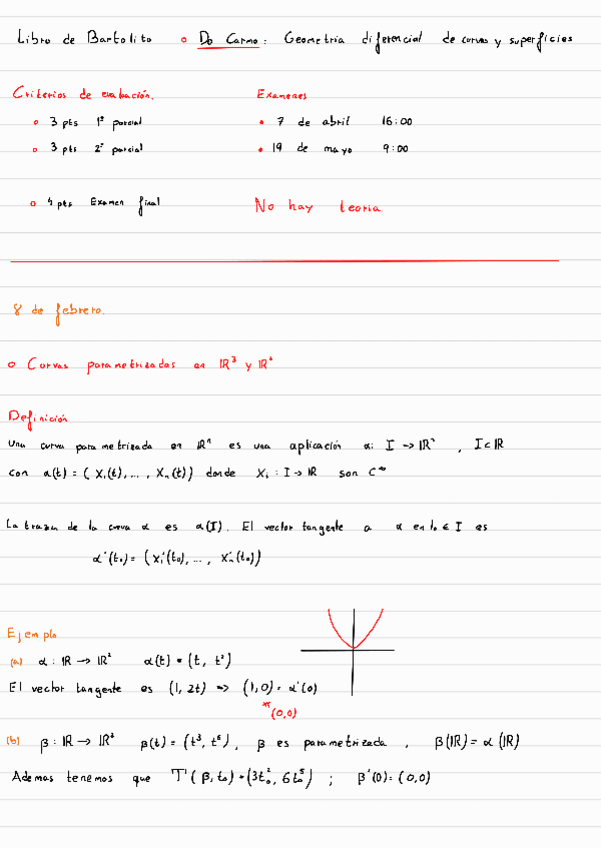 Libro de Bartolito o Do Carmo: Geometria diferencial de curvas y superficies
Criterios de evaluación. Examenes
o 3 pts 1º parcial • 7 de abril 16:00
o 3 pts 2º parcial • 19 de mayo 9:00
o 4 pts Examen final No hay teoria
8 de febrero.
o Curvas parametrizadas en ℝ³ y ℝ²
Definición
Una curva parametrizada en ℝⁿ es una aplicación α: I → ℝⁿ , I ⊂ ℝ
con α(t) = ( X₁(t), ... , Xₙ(t)) donde Xᵢ : I → ℝ son C^∞
La traza de la curva α es α(I). El vector tangente a α en t₀ ∈ I es
α'(t₀) = (X₁'(t₀), ... , Xₙ'(t₀))
Ejemplo
(a) α : ℝ → ℝ² α(t) = (t, t²)
El vector tangente es (1, 2t) => (1,0) = α'(0)
≠ (0,0)
(b) β : ℝ → ℝ² β(t) = (t³, t⁶), β es parametrizada , β(ℝ) = α(ℝ)
Ademas tenemos que T(β, t₀) = (3t₀², 6t₀⁵) ; β'(0) = (0,0)